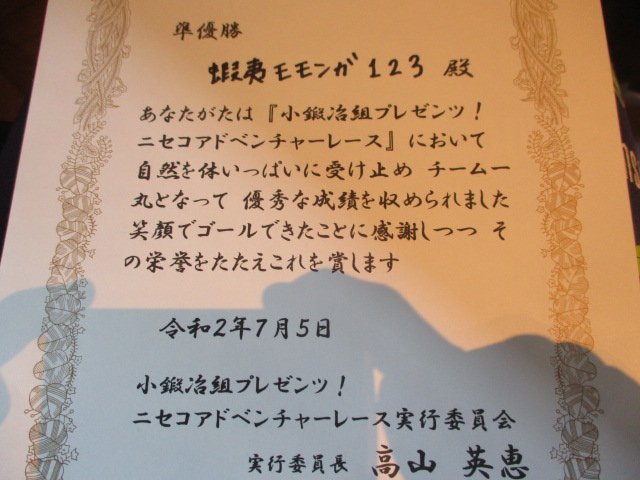 準優勝
蝦夷モモンガ123 殿
あなたがたは『小鍛冶組プレゼンツ！
ニセコアドベンチャーレース』において
自然を体いっぱいに受け止め チーム一
丸となって 優秀な成績を収められました
笑顔でゴールできたことに感謝しつつ そ
の栄誉をたたえこれを賞します
令和2年7月5日
小鍛冶組プレゼンツ！
ニセコアドベンチャーレース実行委員会
実行委員長 高山 英恵